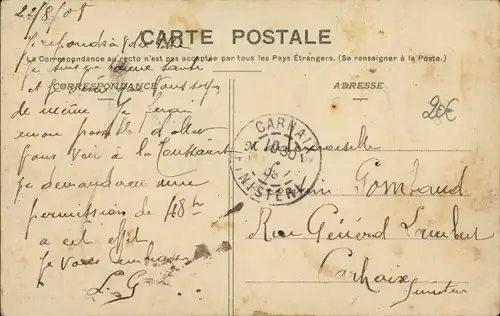 22/8/08
CARTE POSTALE
La Correspondance au recto n'est pas acceptée par tous les Pays Étrangers. (Se renseigner à la Poste.)
CORRESPONDANCE
ADRESSE
Je réponds à
Je suis en bonne santé
et
de même. Je ferai
mon possible d'aller
vous voir à la Toussaint
je demanderai une
permission de 48h
a cet effet
Je vous embrasse
L. G
20€
CARNA
FINISTÈRE
Mademoiselle
Gombaud
Rue Général Lambert
Carhaix
Finistère